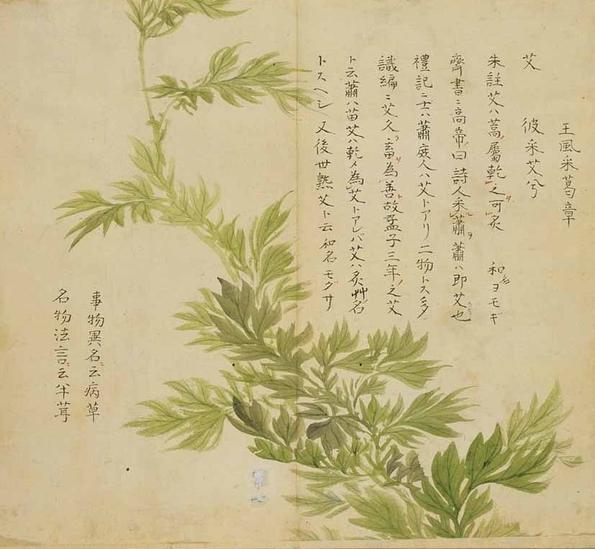 王風采葛章
艾　彼采艾兮
朱註艾ハ蒿屬乾之可灸　和名ヨモギ
齊書ニ高帝曰詩人采蕭蕭ハ即艾也
禮記ニ士ハ蕭庶人ハ艾トアリ二物トス多
識編ニ艾久畜為善故孟子三年之艾
ト云蕭ハ苗艾ハ乾〆為艾トアレバ艾ハ灸艸名
トスヘシ又後世熟艾ト云和名モクサ
事物異名ニ云病草
名物法言ニ云半茸